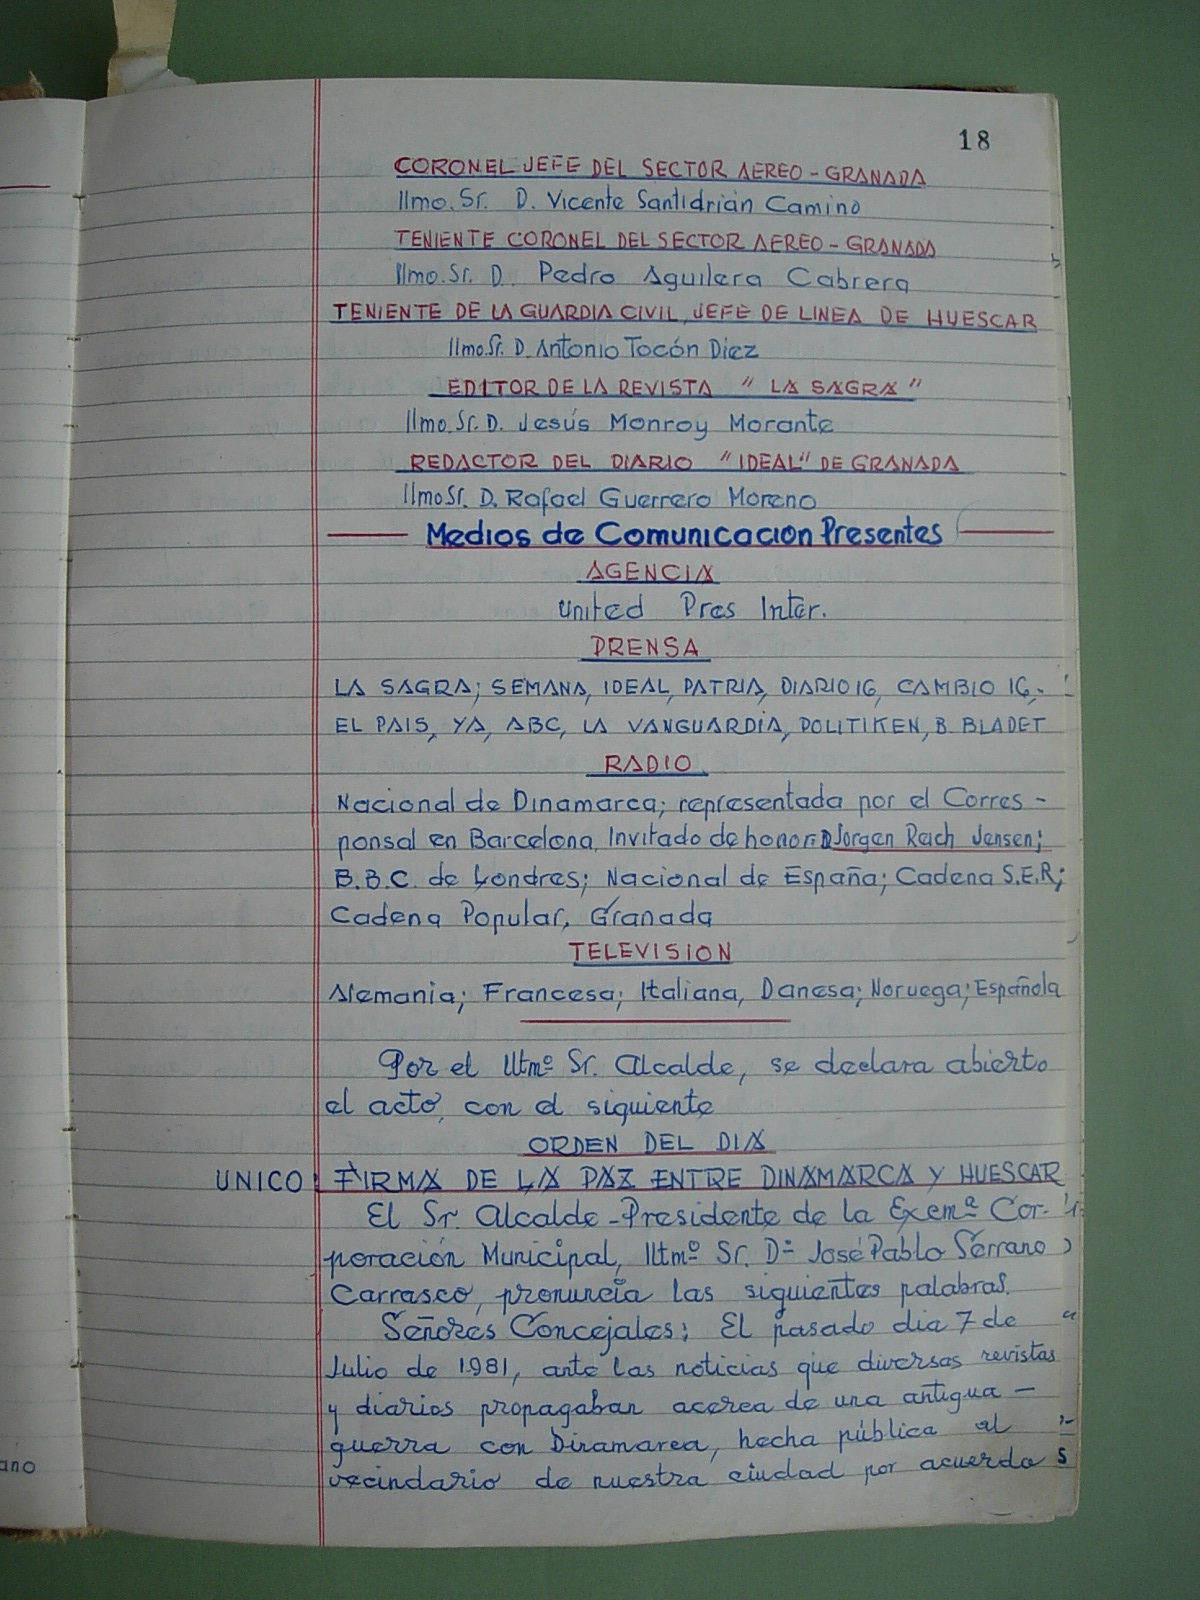 18
CORONEL JEFE DEL SECTOR AEREO - GRANADA
Ilmo. Sr. D. Vicente Santidrián Camino
TENIENTE CORONEL DEL SECTOR AEREO - GRANADA
Ilmo. Sr. D. Pedro Aguilera Cabrera
TENIENTE DE LA GUARDIA CIVIL, JEFE DE LINEA DE HUESCAR
Ilmo. Sr. D. Antonio Tocón Diez
EDITOR DE LA REVISTA " LA SAGRA "
Ilmo. Sr. D. Jesús Monroy Morante
REDACTOR DEL DIARIO "IDEAL" DE GRANADA
Ilmo Sr. D. Rafael Guerrero Moreno
Medios de Comunicacion Presentes
AGENCIA
United Pres Inter.
PRENSA
LA SAGRA; SEMANA, IDEAL, PATRIA, DIARIO 16, CAMBIO 16,-
EL PAIS, YA, ABC, LA VANGUARDIA, POLITIKEN, B. BLADET
RADIO
Nacional de Dinamarca; representada por el Corres -
ponsal en Barcelona, Invitado de honor: D Jorgen Reich Jensen;
B.B.C. de Londres; Nacional de España; Cadena S.E.R;
Cadena Popular, Granada
TELEVISION
Alemania; Francesa; Italiana, Danesa; Noruega; Española
Por el Iltmº Sr. Alcalde, se declara abierto
el acto, con el siguiente
ORDEN DEL DIA
UNICO: FIRMA DE LA PAZ ENTRE DINAMARCA Y HUESCAR
El Sr. Alcalde - Presidente de la Excmª Cor-
poración Municipal, Iltmº Sr. Dº José Pablo Serrano
Carrasco, pronuncia las siguientes palabras.
Señores Concejales: El pasado dia 7 de
Julio de 1.981, ante las noticias que diversas revistas
y diarios propagaban acerca de una antigua -
guerra con Dinamarca, hecha pública al
vecindario de nuestra ciudad por acuerdo
ano